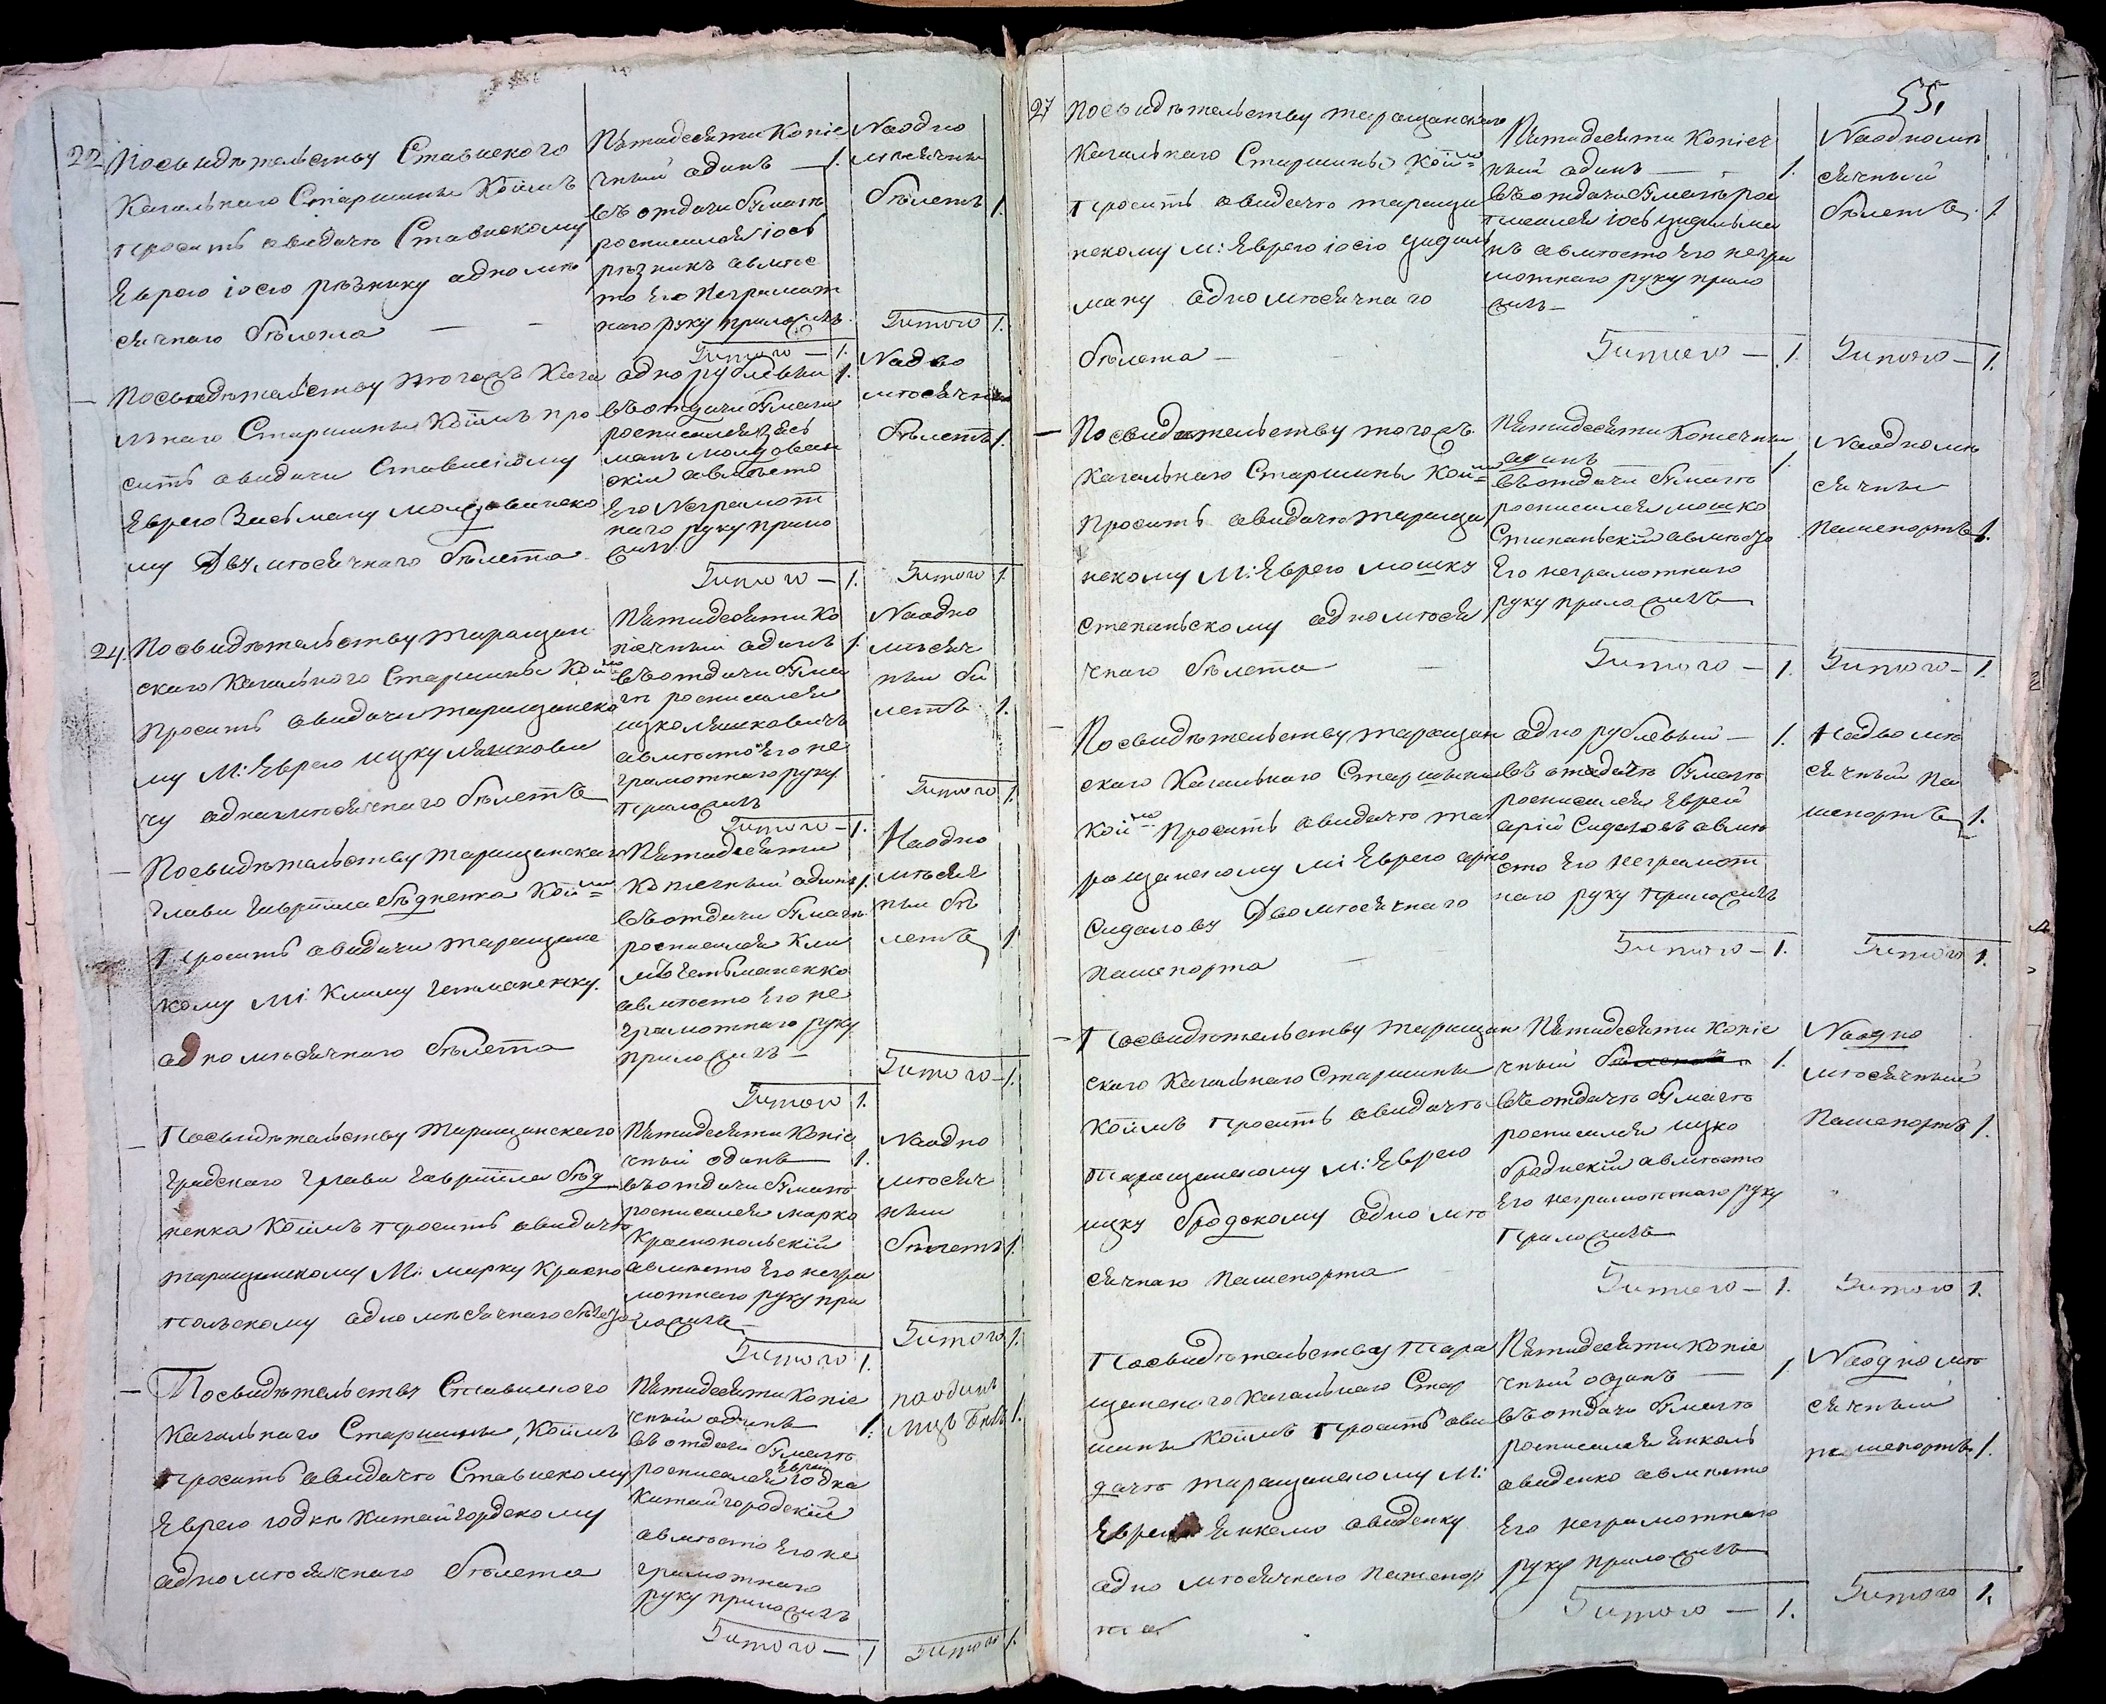 22 Посвидѣтельству Ставиского
Кагальнаго Старшины Коимъ
проситъ авидачѣ Ставискому
Еврею іосю рѣзнику адномѣ
сячнаго бѣлета — —
Пятидесяти Копіе
чный адинъ — 1.
въотдачи бумагѣ
росписался іось
рѣзникъ авмѣс
то Его Неграмот
наго руку приложилъ
Итого — 1.
Наодно
мѣсячны
бѣлетъ 1.
Итого 1.
— Посвидѣтельству тогожъ Кага
лнаго Старшины Коимъ про
ситъ авидачи Ставискому
Еврею Зисьману молдованско
му Двумѣсячнаго бѣлета
аднорублевый 1.
въотдачи бумаги
росписался Зись
манъ молдован
скій авмѣсто
Его Неграмот
наго руку прило
жилъ
Итого — 1.
Надво
мѣсячны
бѣлетъ 1.
Итого 1.
24. Посвидѣтельству таращан
скаго Кагальнаго Старшины Коимъ
проситъ авидачи таращанско
му М: Еврею ицку ляшкови
чу аднамѣсячнаго бѣлетѣ
Пятидесяти Ко
пѣечный адинъ 1.
въотдачи бума
гѣ росписался
ицко ляшковичъ
авмѣсто Его не
грамотнаго руку
приложилъ
Итого — 1.
Наодно
мѣсяч
ныи би
летъ 1.
Итого 1.
— Посвидѣтельству таращанскаго
Глави Гавріила бѣдненка Коимъ
проситъ авидачи таращанс
кому Мі Климу Гетманенку
адномѣсячнаго бѣлета
Пятидесяти
Копіечный адинъ 1.
въотдачи бумагѣ
росписался Кли
мъ Гетьманенко
авмѣсто Его не
грамотнаго руку
приложилъ —
Итого 1.
Наодно
мѣсяч
ныи бѣ
летъ 1.
Итого — 1.
— Посвидѣтельству Таращанского
Градскаго Глави Гавріила бѣд
ненка Коимъ проситъ авидачѣ
таращанскому Мі. марку Красно
польскому адномѣсячнаго бѣлета
Пятидесяти Копіе
чный одинъ — 1.
въотдачи бумагѣ
росписался марко
Краснопольскій
авмѣсто Его негра
мотнаго руку при
ложилъ —
Итого 1.
Наодно
мѣсяч
ныи
бѣлетъ 1.
Итого 1.
— Посвидѣтельству Ставиского
Кагальнаго Старшины, Коимъ
проситъ авидачѣ Ставискому
Еврею годкѣ Китайгордскому
адномѣсячнаго бѣлета
Пятидесяти Копіе
чный адинъ 1.
въотдачи бумагѣ
Еврей
росписался годка
Китайгородскій
авмѣсто Его не
грамотнаго
руку приложилъ
Итого — 1
наодинъ
мцъ 1.
Итого 1.
55.
27 Посвидѣтельству таращанскаго
Кагальнаго Старшины Коимъ
проситъ авидачѣ тараща
нскому М: Еврею іосю
ману адномѣсячнаго
бѣлета —
Пятидесяти Копіеч
ный адинъ — 1.
въотдачи бумагѣ рос
писался іось
нъ авмѣсто Его негра
мотнаго руку прило
жилъ —
Итого — 1.
Наодномѣ
сячный
бѣлетъ. 1.
Итого — 1.
— Посвидѣтельству тогожъ
Кагальнаго Старшины Коимъ
проситъ авидачѣ тараща
нскому М: Еврею мошку
степаньскому адномѣся
чнаго бѣлета —
Пятидесяти Копечный
адинъ 1.
въотдачи бумагѣ
росписался мошко
Степаньскій авмѣсто
Его неграмотнаго
руку приложилъ
Итого — 1.
Наодномѣ
сячны
пашепортъ 1.
Итого — 1.
— Посвидѣтельству таращан
скаго Кагальнаго Старшины
Коимъ проситъ авидачѣ та
ращанскому Мі Еврею арію
Сидалову Двомѣсячнаго
пашепорта —
аднорублевый — 1.
въ отдачѣ бумагѣ
росписался Еврей
арій Сидаловъ авмѣ
сто Его неграмот
наго руку приложилъ
Итого — 1.
Надвомѣ
сячный па
шепортъ 1.
Итого 1.
— Посвидѣтельству таращан
скаго Кагальнаго Старшины
Коимъ проситъ авидачѣ
таращанскому М: Еврею
ицку бродскому адномѣ
сячнаго пашепорта
Пятидесяти Копіе
чный 1.
въотдачѣ бумагѣ
росписался ицко
бродискій авмѣсто
Его неграмотнаго руку
приложилъ
Итого — 1.
Наодно
мѣсячный
пашепортъ 1.
Итого 1.
Посвидѣтельству тара
щанского Кагальнаго Стар
шины Коимъ проситъ ави
дачѣ таращанскому М:
Еврею Янкелю авиденку
адно мѣсячнаго пашепор
та
Пятидесяти Копіе
чный одинъ — 1.
въотдачи бумагѣ
росписался Янкель
авиденко авмѣсто
Его неграмотнаго
руку приложилъ
Итого — 1.
Наодномѣ
сячный
пашепортъ 1.
Итого 1.